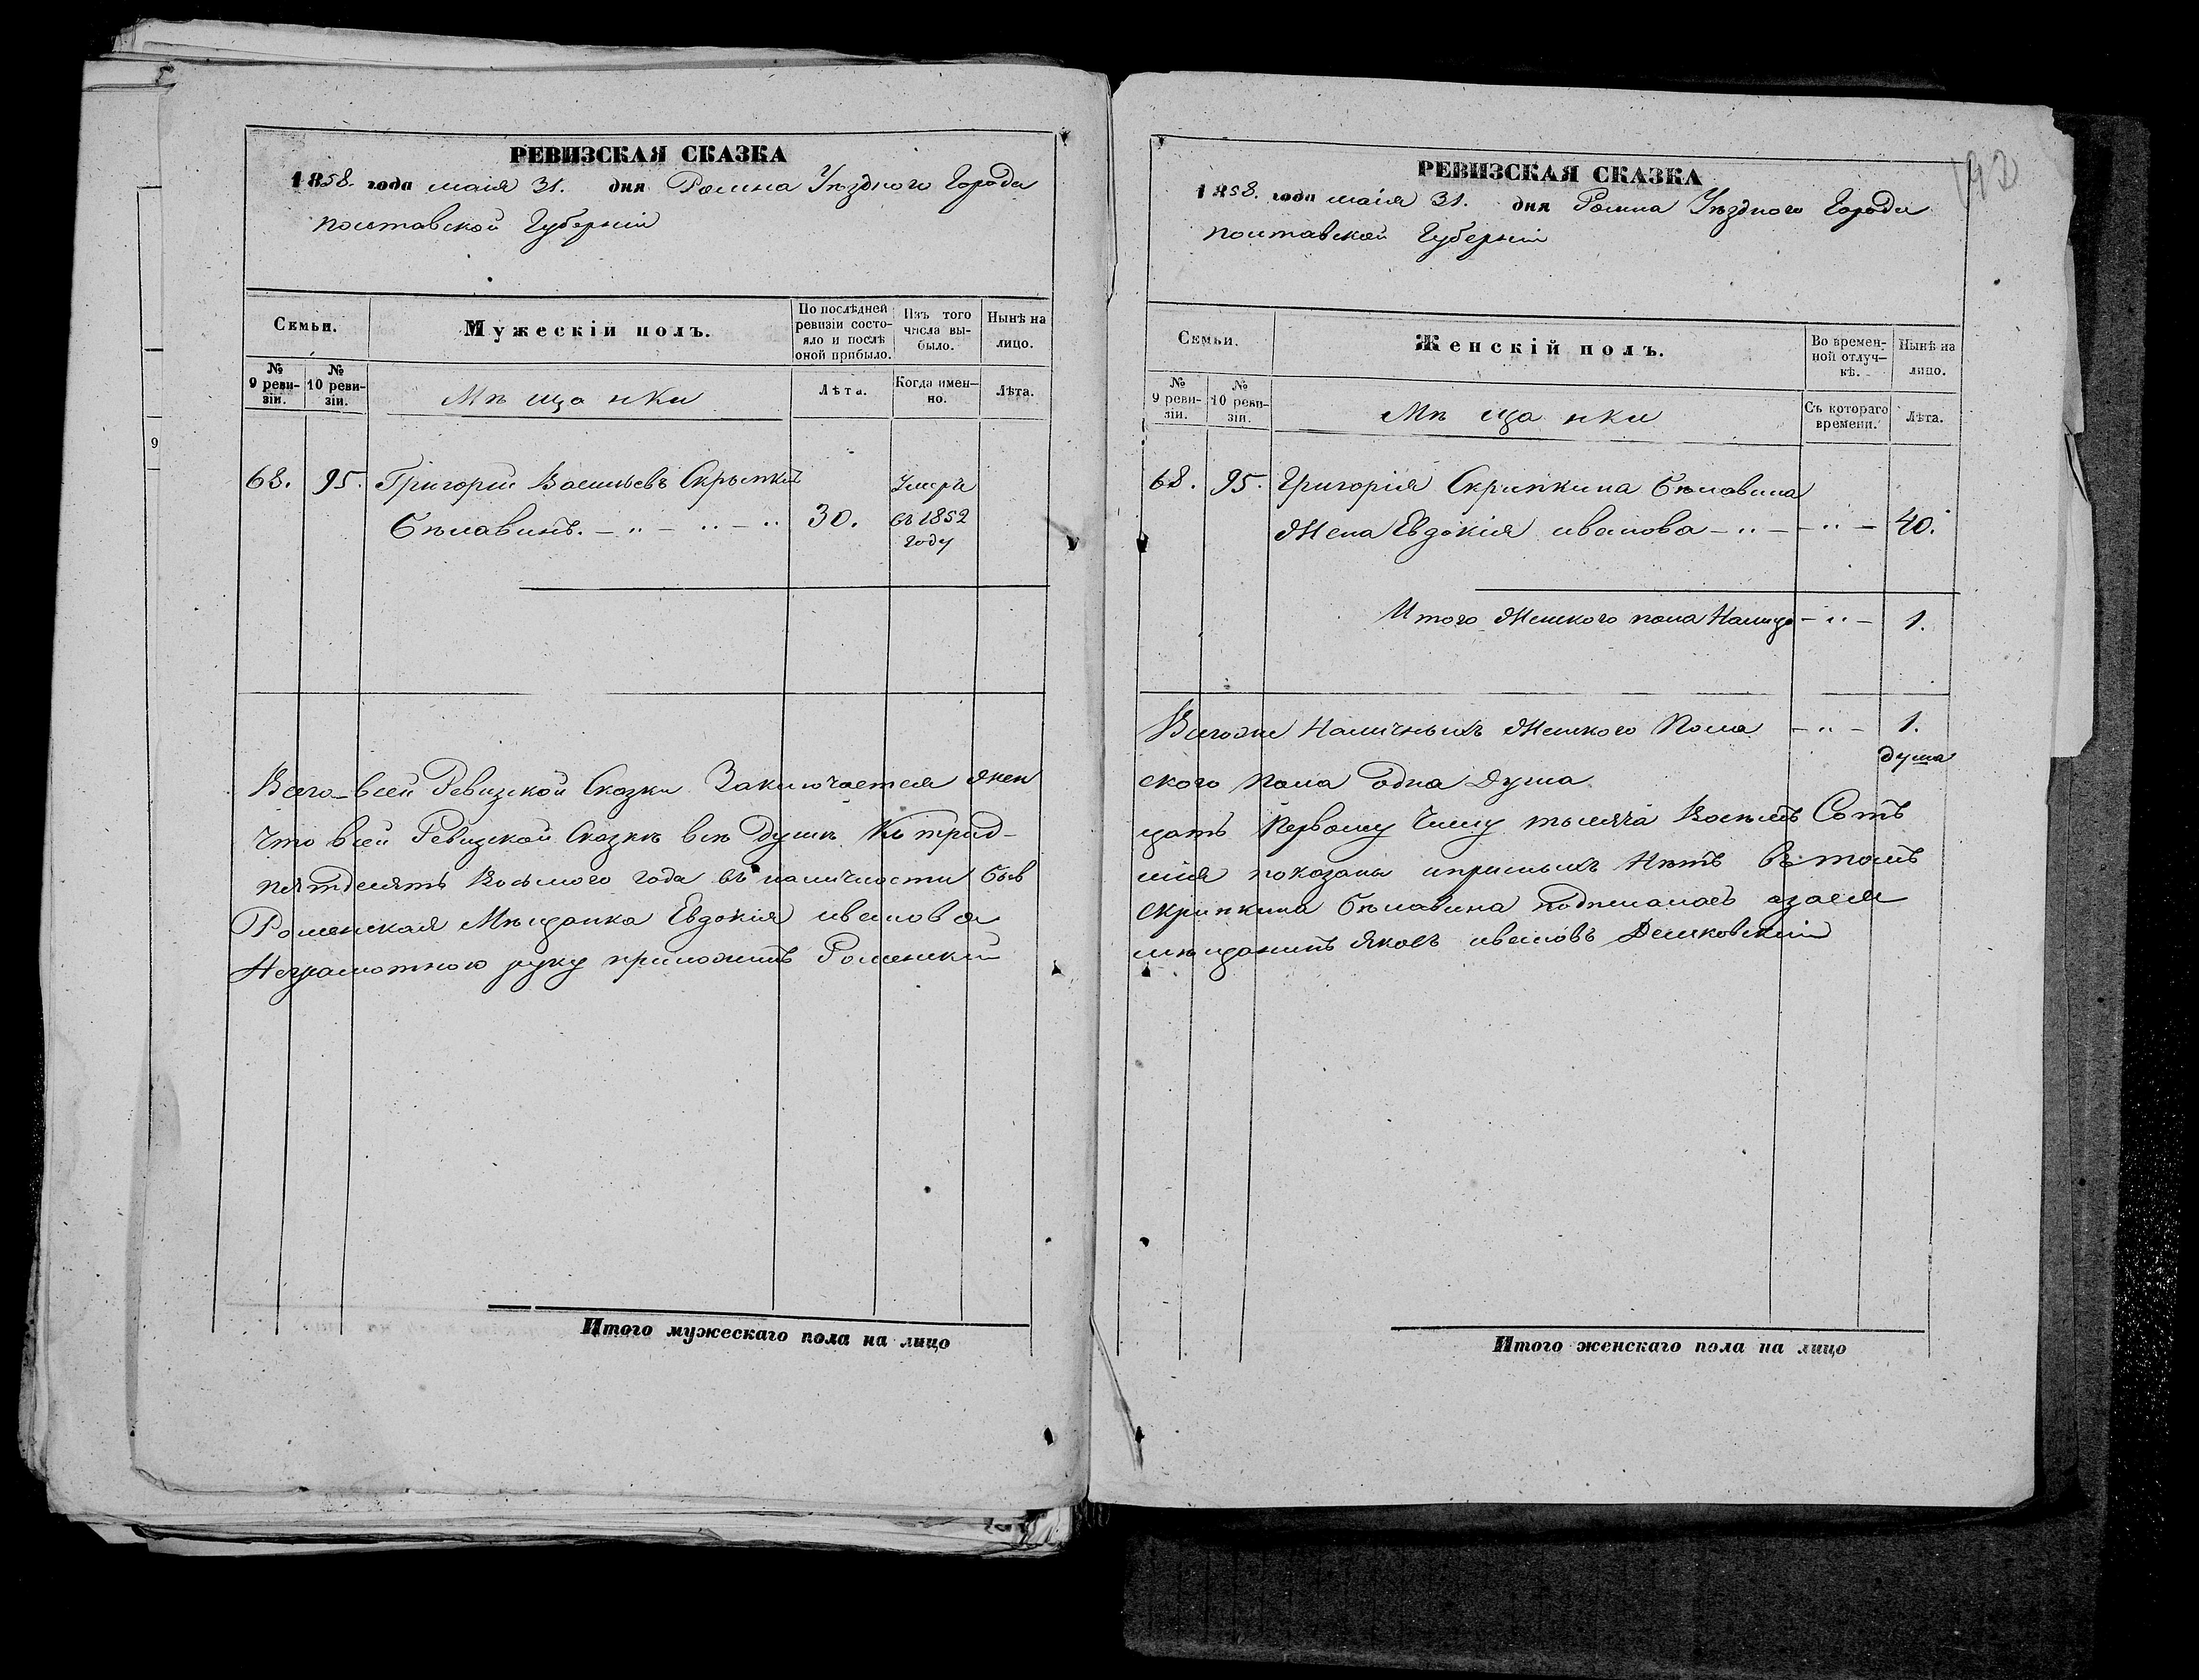 РЕВИЗСКАЯ СКАЗКА
1858. года маія 31. дня Ромна Уѣзднаго Города
Полтавской Губерніи
Семьи.
Мужескій полъ.
По послѣдней ревизіи состояло и послѣ оной прибыло.
Изъ того числа выбыло.
Нынѣ на лицо.
№ 9 ревизіи.
№ 10 ревизіи.
Мѣщанки
Лѣта.
Когда именно.
Лѣта.
9
68. 95. Григорій Васильевъ Скрыпкинъ
Умеръ
Бѣлавинъ. 30. въ 1852
году
Всего всей Ревизской Сказки Заключается жен
Что всей Ревизской Сказкѣ всѣ Души Къ трид-
пятдесятъ Восьмого года въ наличности быв
Роменская Мѣщанка Евдокія иванова
Неграмотною руку приложилъ Роменскій
Итого мужескаго пола на лицо
РЕВИЗСКАЯ СКАЗКА
1858. года маія 31. дня Ромна Уѣзднаго Города
Полтавской Губерніи
Семьи.
Женскій полъ.
Во временной отлучкѣ.
Нынѣ на лицо.
№ 9 ревизіи.
№ 10 ревизіи.
Мѣщанки
Съ котораго времени.
Лѣта.
68. 95. Григорія Скрипкина Бѣлавина
Жена Евдокія иванова 40.
Итого Женского пола Налицо 1.
Всегоже Наличныхъ Женского Пола 1.
душа
ского пола одна Душа
цать Первому Числу тысяча Восѣмъ Сотъ
шія показаны Нѣтъ Въ томъ
Скрипкина Бѣлавина
мѣщанинъ Яковъ ивановъ
Итого женскаго пола на лицо